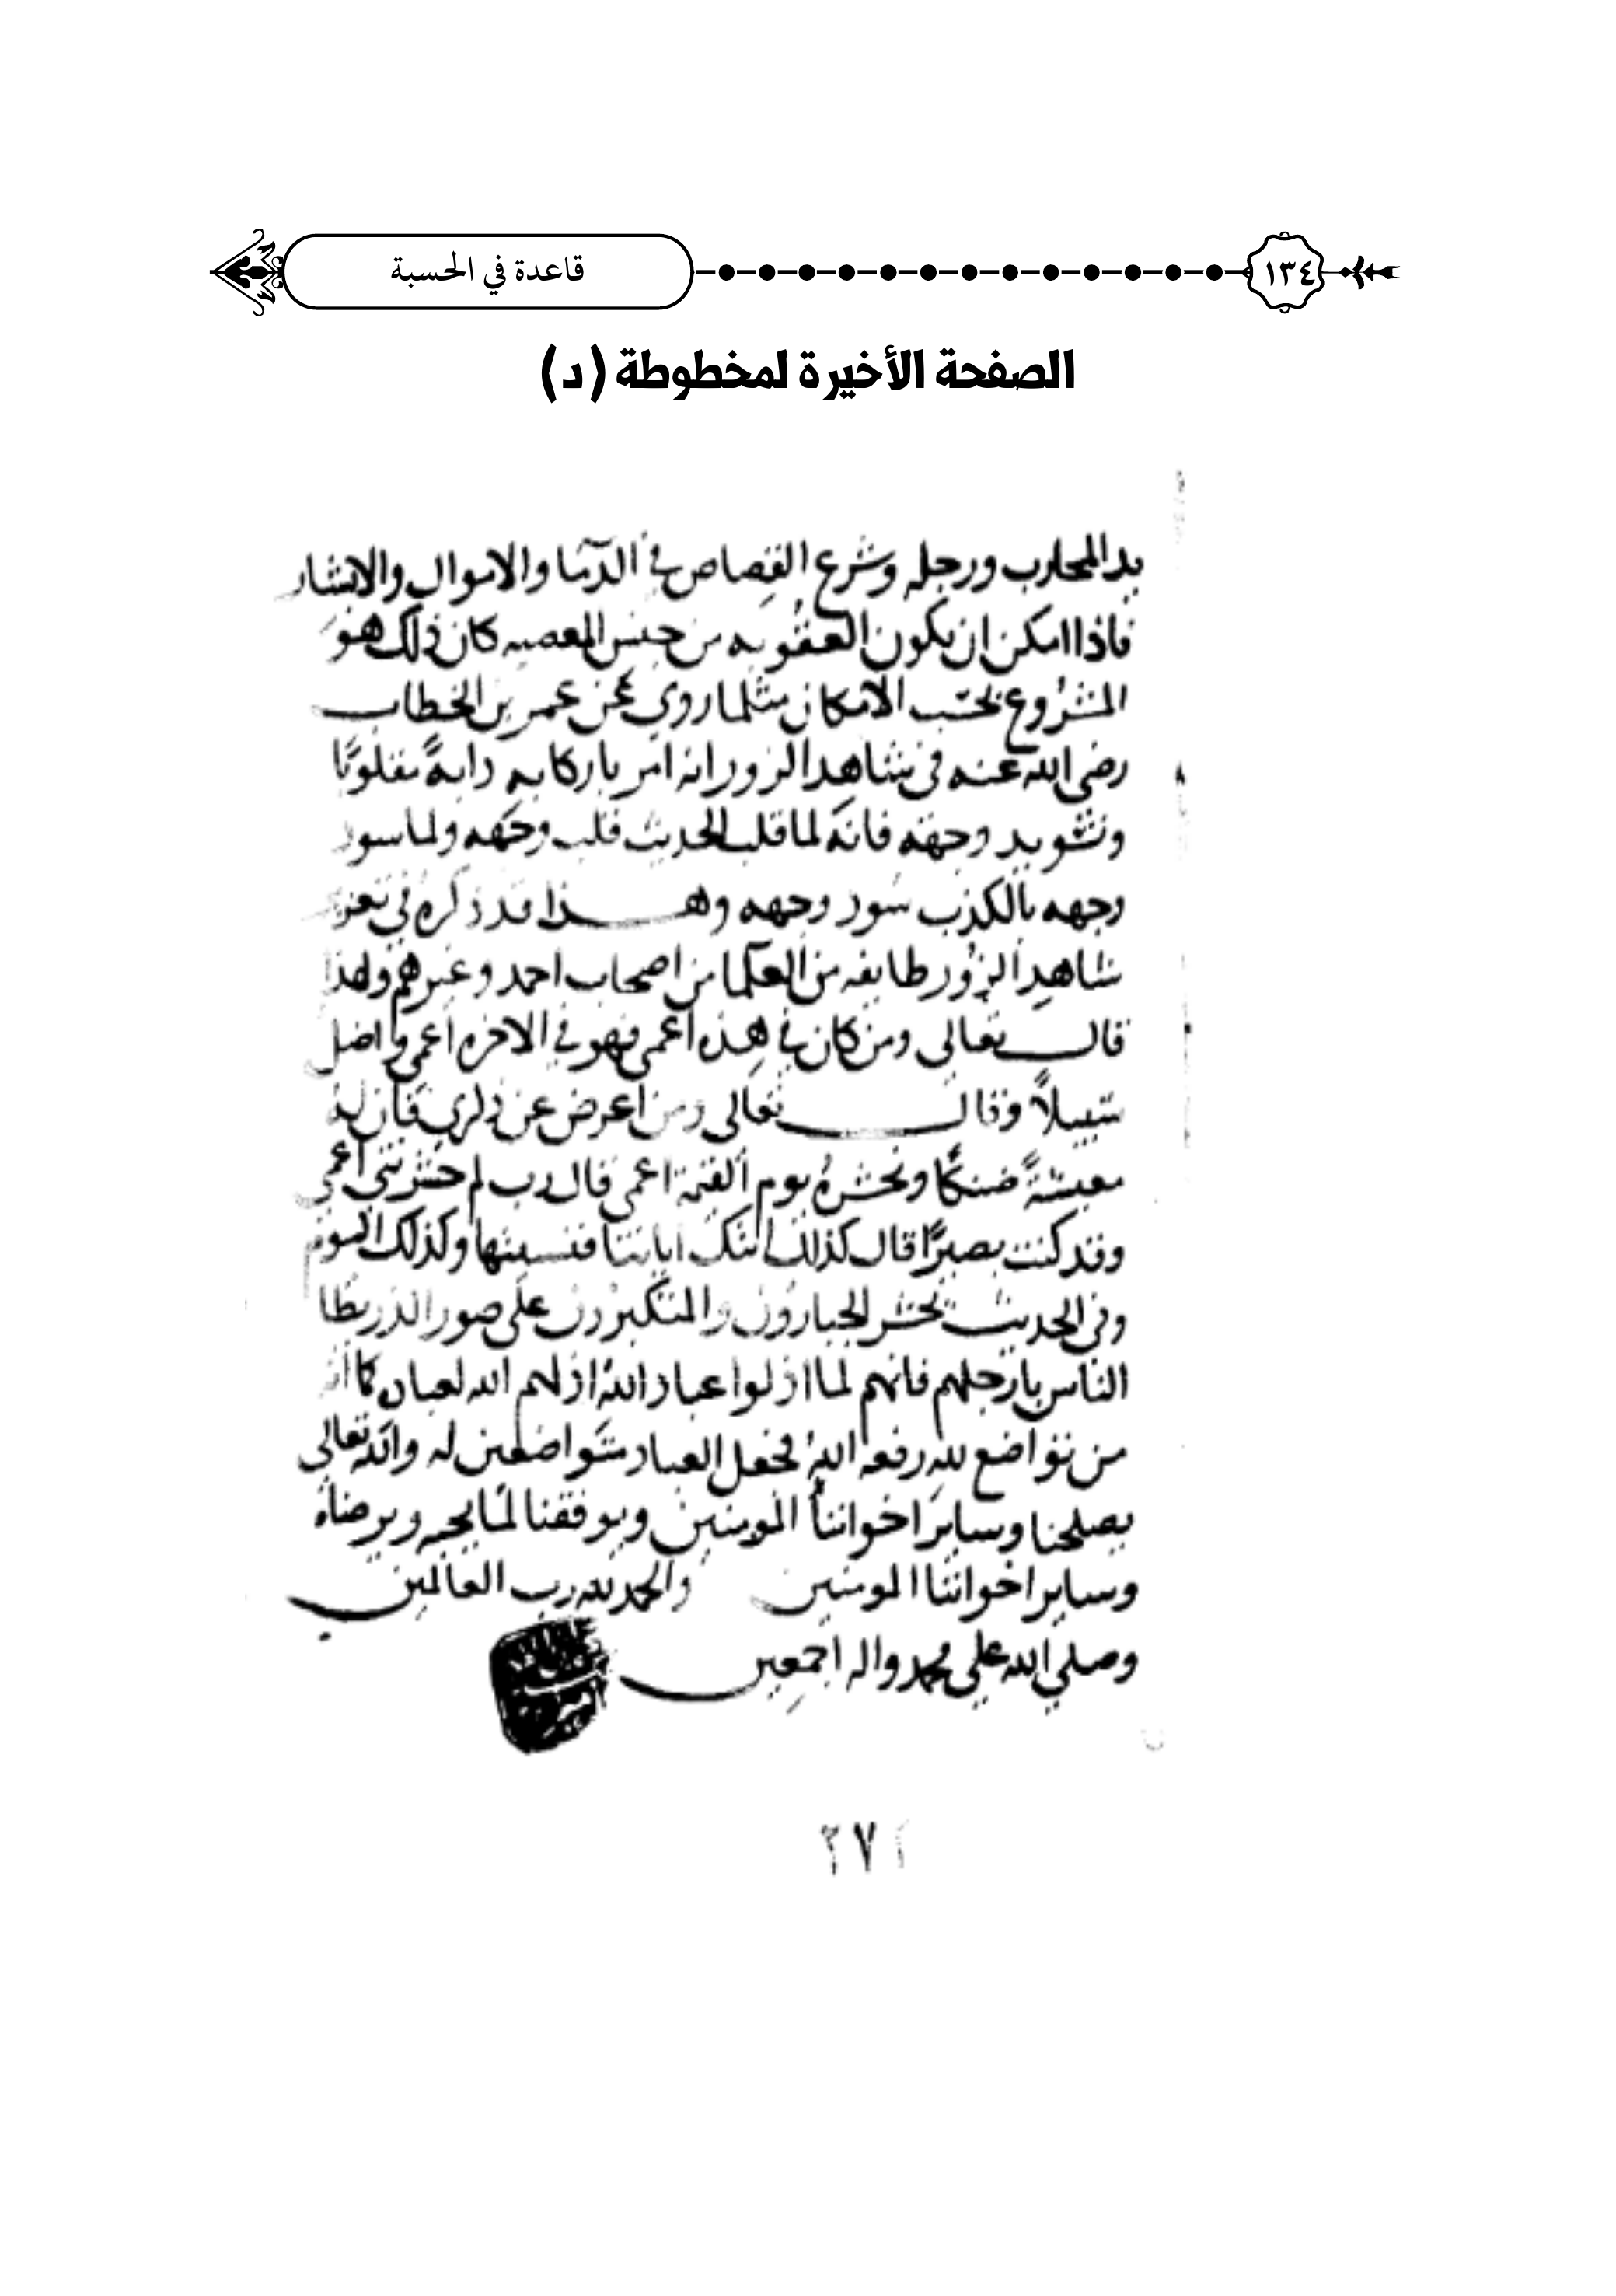 ١٣٤
قاعدة في الحسبة
الصفحة الأخيرة لمخطوطة (د)
يد المحارب ورجله وشرع القصاص في الدما والاموال والابشار
فاذا امكن ان يكون العقوبه من جنس المعصيه كان ذلك هو
المشروع بحسب الامكان مثلما روي عن عمر بن الخطاب
رضي الله عنه في شاهد الزور انه امر باركابه دابةً مقلوبًا
وتسويد وجهه فانه لما قلب الحديث قلب وجهه ولما سود
وجهه بالكذب سود وجهه وهذا قد ذكره في تعزير
شاهد الزور طايفه من العلما من اصحاب احمد وغيرهم ولهذا
قال تعالى ومن كان في هذه اعمى فهو في الاخره اعمى واضل
سبيلاً وقال تعالى ومن اعرض عن ذكري فان له
معيشةً ضنكًا ونحشرهُ يوم القيمة اعمى قال رب لم حشرتني اعمى
وقد كنت بصيرًا قال كذلك اتتك اياتنا فنسيتها وكذلك اليوم
وفي الحديث يحشر الجبارون والمتكبرون على صور الذر يطا
الناس بارجلهم فانهم لما اذلوا عباد الله اذلهم الله لعباده كما ان
من تواضع لله رفعه الله فجعل العباد متواضعين له والله تعالى
يصلحنا وساير اخواننا المومنين ويوفقنا لما يحبه ويرضاه
وساير اخواننا المومنين والحمد لله رب العالمين
وصلى الله على محمد واله اجمعين